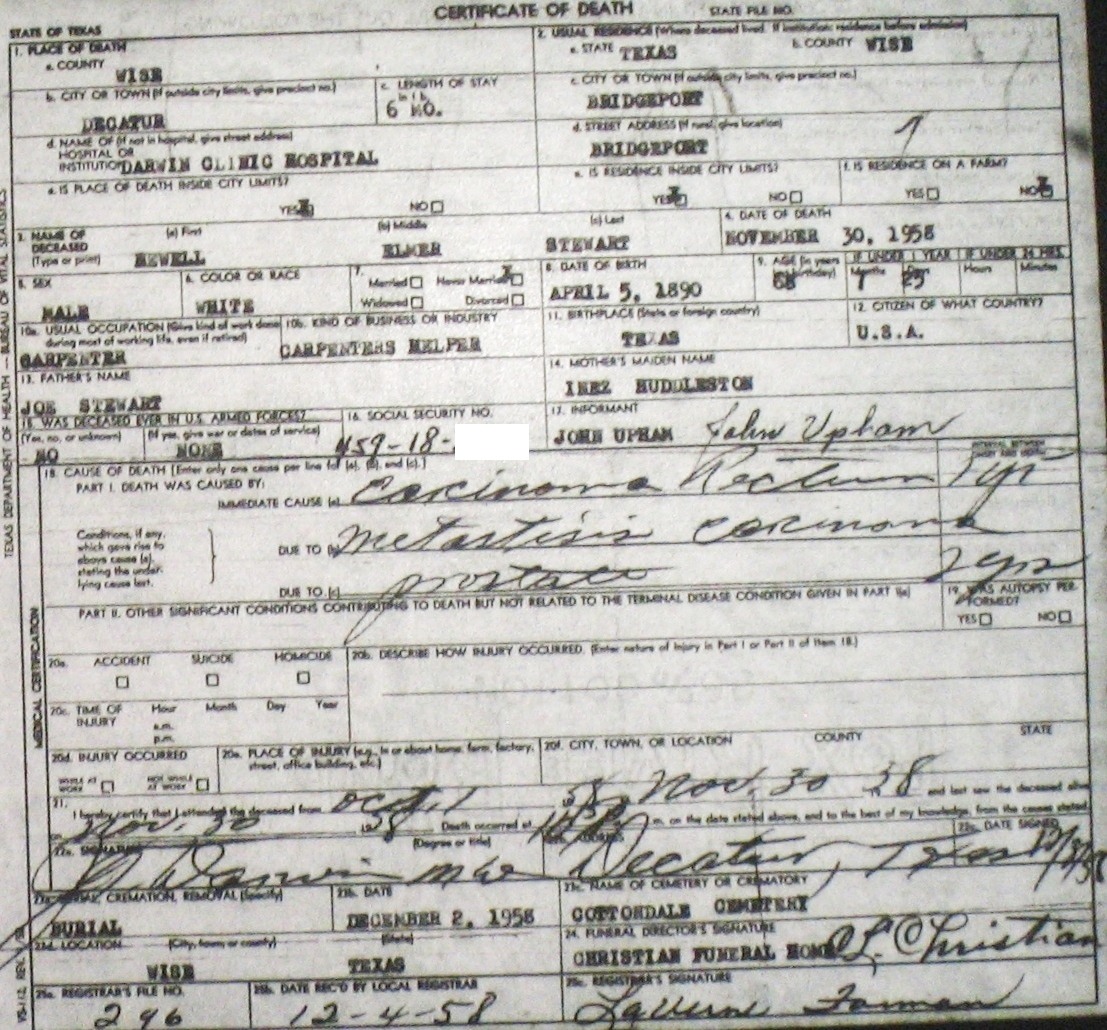 CERTIFICATE OF DEATH STATE FILE NO.
STATE OF TEXAS
1. PLACE OF DEATH
a. COUNTY
WISE
2. USUAL RESIDENCE (Where deceased lived. If institution: residence before admission)
a. STATE TEXAS b. COUNTY WISE
b. CITY OR TOWN (If outside city limits, give precinct no.)
DECATUR
c. LENGTH OF STAY
in 1 b.
6 MO.
c. CITY OR TOWN (If outside city limits, give precinct no.)
BRIDGEPORT
d. NAME OF (If not in hospital, give street address)
HOSPITAL OR
INSTITUTION DARWIN CLINIC HOSPITAL
d. STREET ADDRESS (If rural, give location)
BRIDGEPORT
e. IS PLACE OF DEATH INSIDE CITY LIMITS?
YES X NO
e. IS RESIDENCE INSIDE CITY LIMITS?
YES X NO
f. IS RESIDENCE ON A FARM?
YES NO X
3. NAME OF DECEASED (Type or print)
(a) First (b) Middle (c) Last
HEWELL ELMER STEWART
4. DATE OF DEATH
NOVEMBER 30, 1958
5. SEX
MALE
6. COLOR OR RACE
WHITE
7.
Married Never Married X
Widowed Divorced
8. DATE OF BIRTH
APRIL 5, 1890
9. AGE (In years birthday)
68
IF UNDER 1 YEAR IF UNDER 24 HRS.
Months Days Hours Minutes
7 25
10a. USUAL OCCUPATION (Give kind of work done
during most of working life, even if retired)
CARPENTER
10b. KIND OF BUSINESS OR INDUSTRY
CARPENTERS HELPER
11. BIRTHPLACE (State or foreign country)
TEXAS
12. CITIZEN OF WHAT COUNTRY?
U.S.A.
13. FATHER'S NAME
JOE STEWART
14. MOTHER'S MAIDEN NAME
INEZ HUDDLESTON
15. WAS DECEASED EVER IN U.S. ARMED FORCES?
(Yes, no, or unknown) (If yes, give war or dates of service)
NO NONE
16. SOCIAL SECURITY NO.
459-18-
17. INFORMANT
JOHN UPHAM John Upham
18. CAUSE OF DEATH [Enter only one cause per line for (a), (b), and (c).]
INTERVAL BETWEEN
ONSET AND DEATH
PART I. DEATH WAS CAUSED BY:
IMMEDIATE CAUSE (a) Carcinoma Rectum 1 yr
Conditions, if any,
which gave rise to
above cause (a),
stating the under-
lying cause last.
DUE TO (b) Metastisis carcinoma
DUE TO (c) prostate 2 yrs
PART II. OTHER SIGNIFICANT CONDITIONS CONTRIBUTING TO DEATH BUT NOT RELATED TO THE TERMINAL DISEASE CONDITION GIVEN IN PART I(a)
19. WAS AUTOPSY PER-
FORMED?
YES NO
20a. ACCIDENT SUICIDE HOMICIDE
20b. DESCRIBE HOW INJURY OCCURRED. (Enter nature of injury in Part I or Part II of Item 18.)
20c. TIME OF
INJURY
Hour Month Day Year
a.m.
p.m.
20d. INJURY OCCURRED
WHILE AT
WORK
NOT WHILE
AT WORK
20e. PLACE OF INJURY (e.g., in or about home, farm, factory,
street, office building, etc.)
20f. CITY, TOWN, OR LOCATION COUNTY STATE
21.
I hereby certify that I attended the deceased from Oct. 1 1958 Nov. 30 1958 and last saw the deceased alive
on Nov. 30 1958 Death occurred at m. on the date stated above, and to the best of my knowledge, from the causes stated.
22a. SIGNATURE (Degree or title)
Darwin
22b. ADDRESS
Decatur, Texas
22c. DATE SIGNED
23a. BURIAL, CREMATION, REMOVAL (Specify)
BURIAL
23b. DATE
DECEMBER 2, 1958
23c. NAME OF CEMETERY OR CREMATORY
COTTONDALE CEMETERY
23d. LOCATION (City, town or county) (State)
WISE TEXAS
24. FUNERAL DIRECTOR'S SIGNATURE
CHRISTIAN FUNERAL HOME Christian
25a. REGISTRAR'S FILE NO.
296
25b. DATE REC'D BY LOCAL REGISTRAR
12-4-58
25c. REGISTRAR'S SIGNATURE
LaVerne Forman
TEXAS DEPARTMENT OF HEALTH — BUREAU OF VITAL STATISTICS
MEDICAL CERTIFICATION